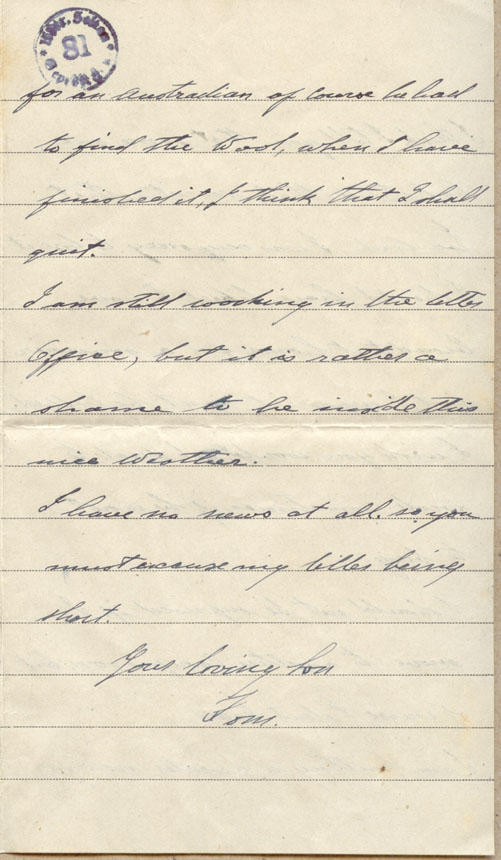 81
for an Australian of course he had
to find the Wool, when I have
finished it, I think that I shall
quit.
I am still working in the letter
Office, but it is rather a
shame to be inside this
nice weather.
I have no news at all. so you
must excuse my letter being
short.
Your loving Son
Tom.